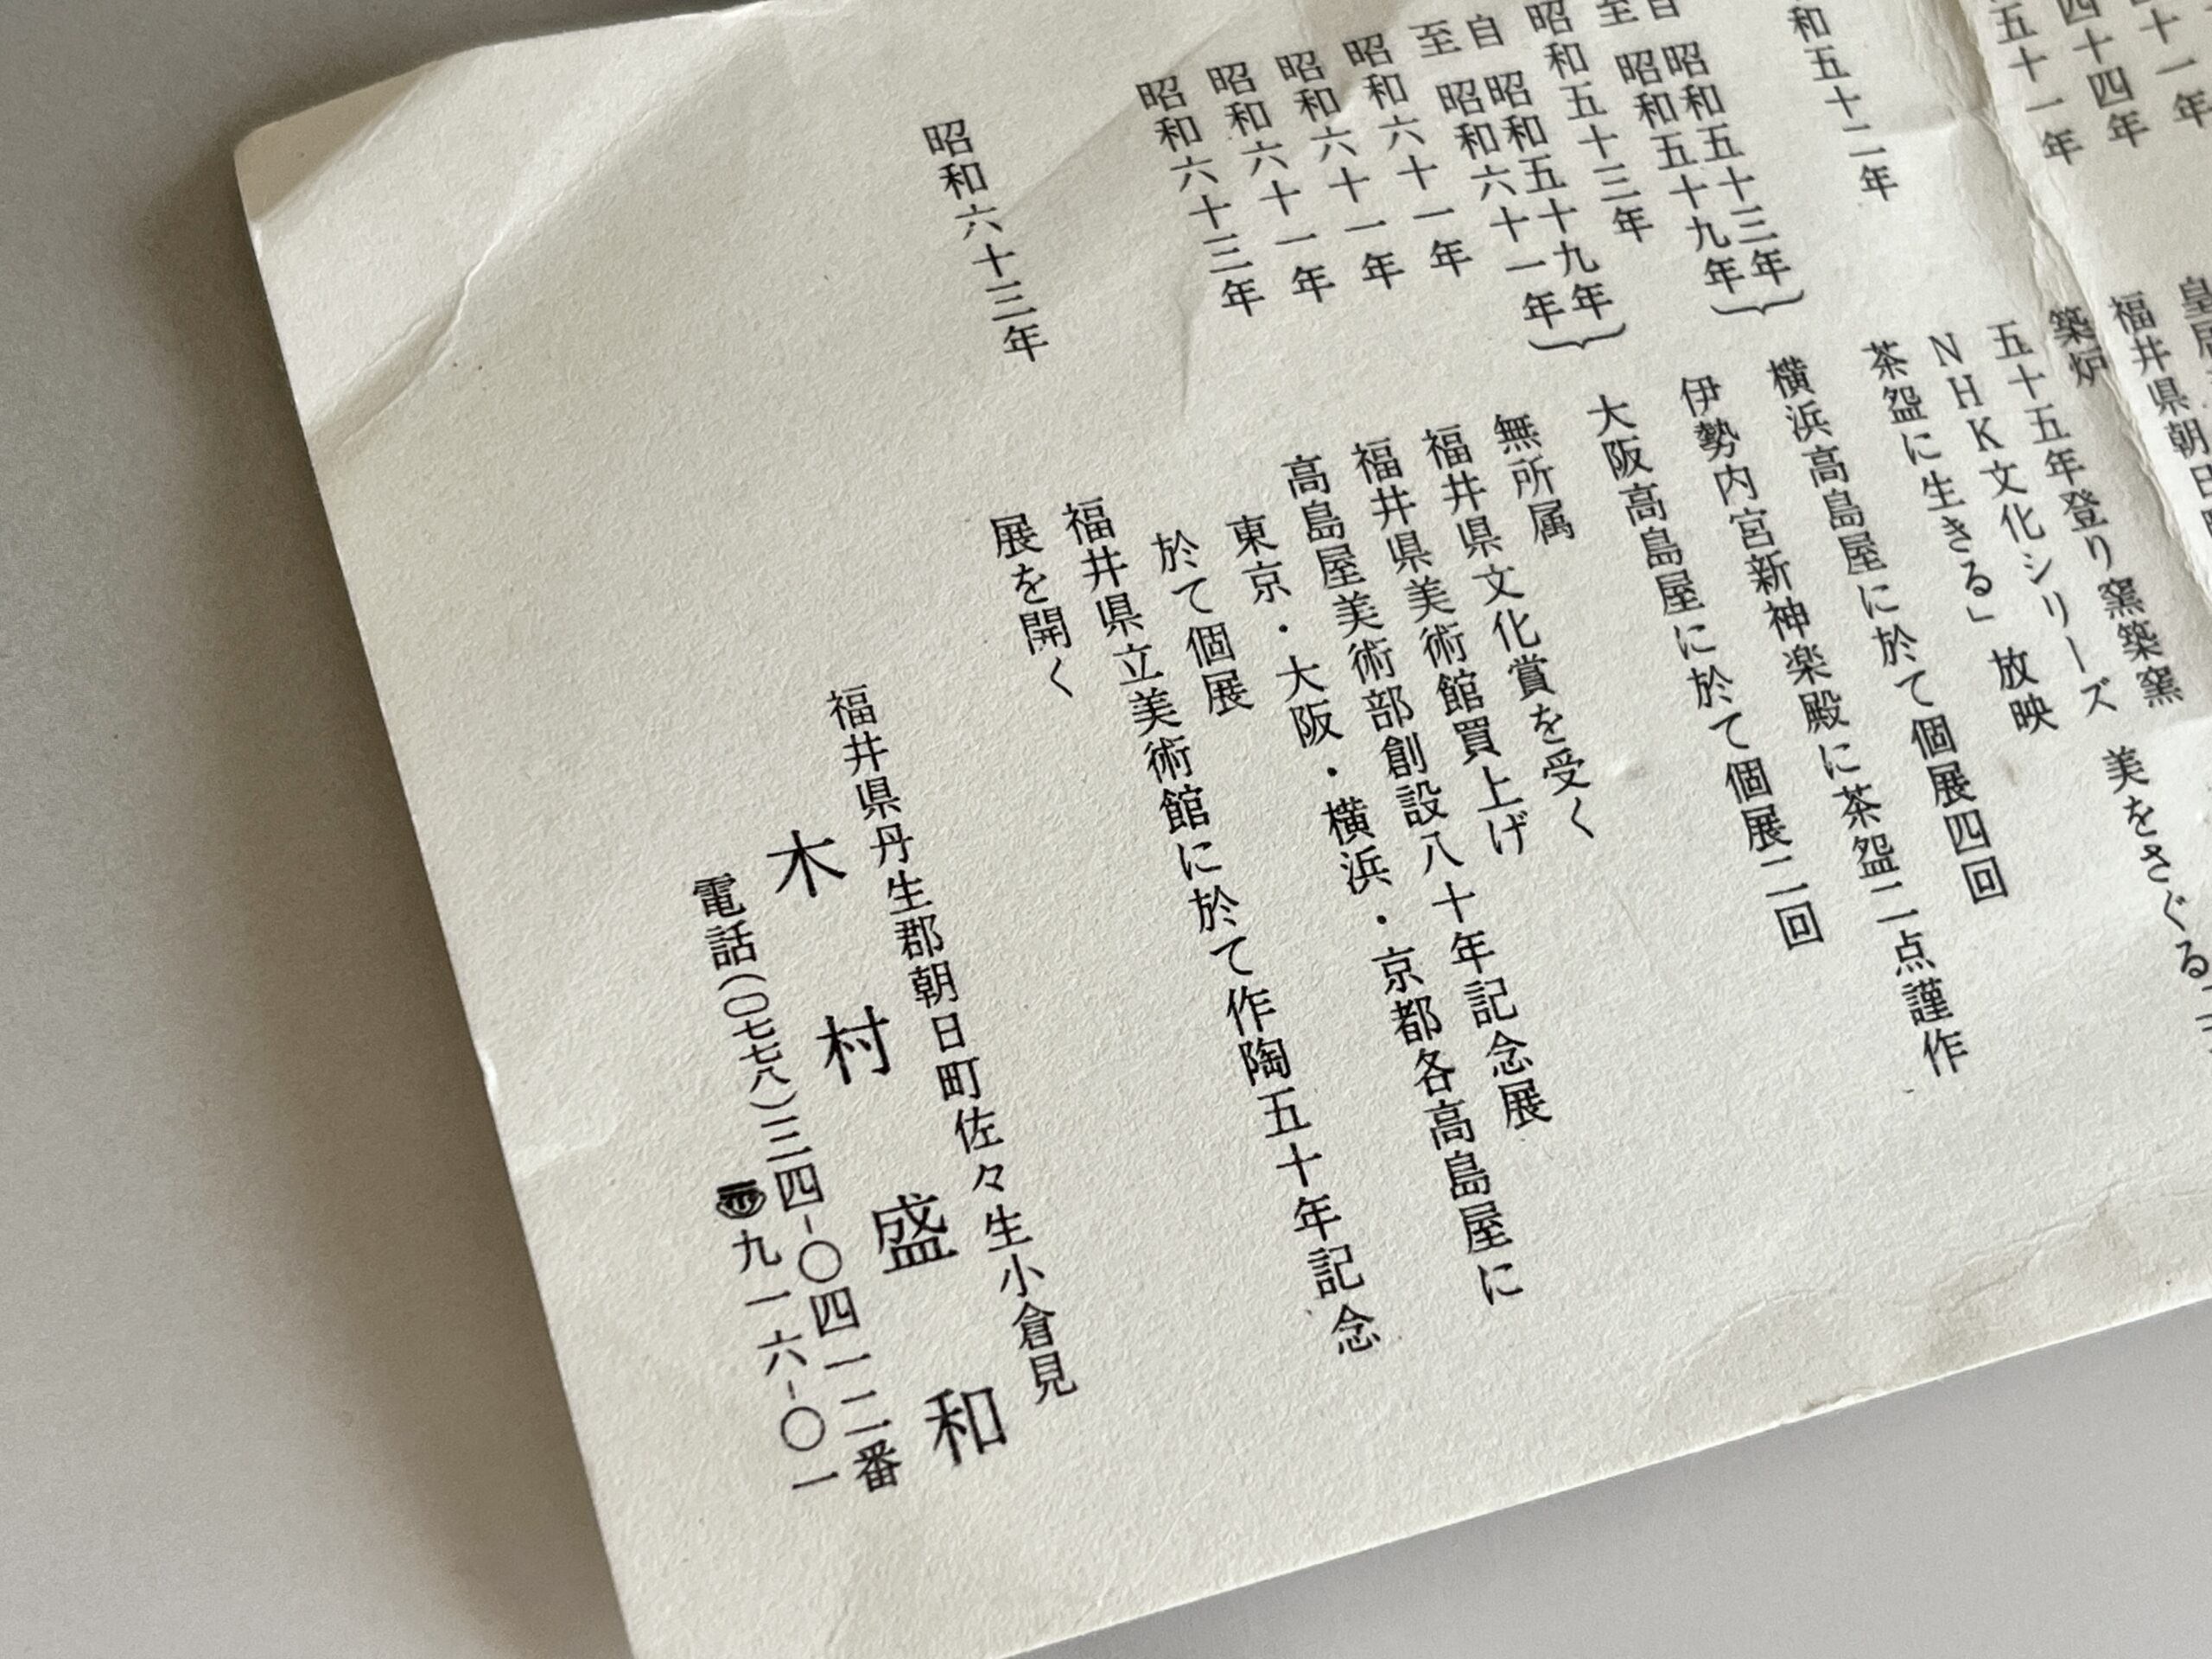 十一年
皇居
四十四年 福井県朝日
築炉
五十一年 五十五年登り窯築窯
和五十二年 NHK文化シリーズ 美をさぐる
茶盌に生きる」放映
自 昭和五十三年
至 昭和五十九年 横浜高島屋に於て個展四回
昭和五十三年 伊勢内宮新神楽殿に茶盌二点謹作
自 昭和五十九年
至 昭和六十一年 大阪高島屋に於て個展二回
昭和六十一年 無所属
昭和六十一年 福井県文化賞を受く
昭和六十一年 福井県美術館買上げ
昭和六十三年 高島屋美術部創設八十年記念展
東京・大阪・横浜・京都各高島屋に
於て個展
昭和六十三年 福井県立美術館に於て作陶五十年記念
展を開く
福井県丹生郡朝日町佐々生小倉見
木村盛和
電話(〇七七八)三四-〇四一二番
〒九一六-〇一